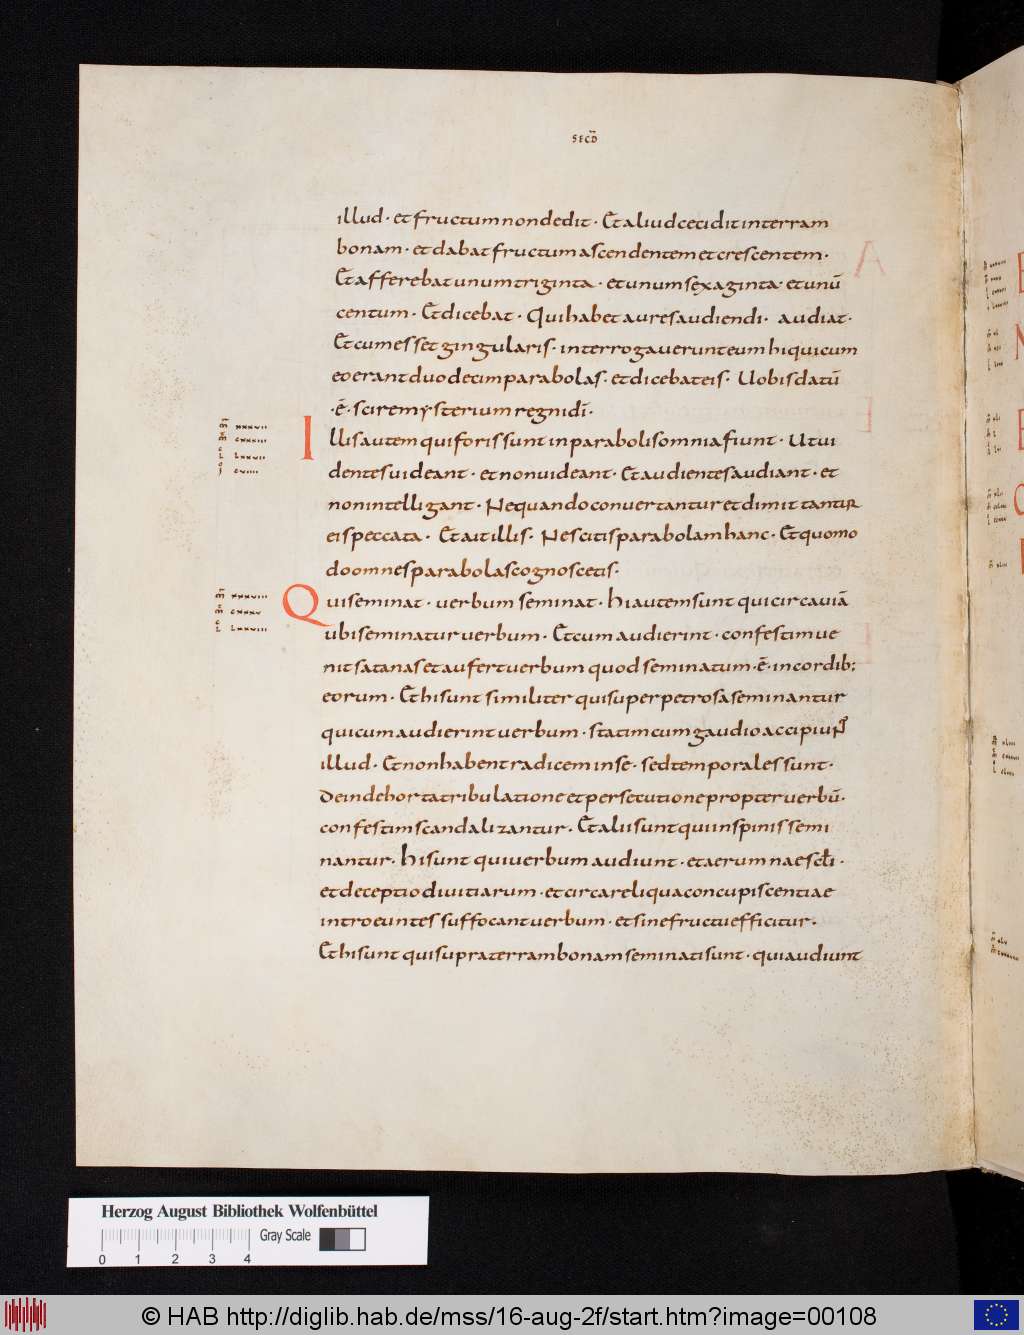 SECD̄
illud · et fructum non dedit · Et aliud cecidit in terram
bonam · et dabat fructum ascendentem et crescentem ·
Et afferebat unum triginta · et unum sexaginta · et unū
centum · Et dicebat · Qui habet aures audiendi · audiat ·
Et cum esset singularis · interrogaverunt eum hi qui cum
eo erant duodecim parabolas · et dicebat eis · Uobis datū
· ē · scire mysterium regni dī ·
Illis autem qui foris sunt in parabolis omnia fiunt · Ut ui
dentes uideant · et non uideant · Et audientes audiant · et
non intelligant · Nequando conuertantur et dimittantur
eis peccata · Et ait illis · Nescitis parabolam hanc · Et quomo
do omnes parabolas cognoscetis ·
Qui seminat · uerbum seminat · hi autem sunt qui circa uiā
ubi seminatur uerbum · Et cum audierint · confestim ue
nit satanas et aufert uerbum quod seminatum · ē · in cordib;
eorum · Et hi sunt similiter qui super petrosa seminantur
qui cum audierint uerbum · statim cum gaudio accipiunt
illud · Et non habent radicem in se · sed temporales sunt ·
Deinde horta tribulatione et persecutione propter uerbū ·
confestim scandalizantur · Et alii sunt qui in spinis semi
nantur · hi sunt qui uerbum audiunt · et aerumnae sctli ·
et deceptio diuitiarum · et circa reliqua concupiscentiae
introeuntes suffocant uerbum · et sine fructu efficitur ·
Et hi sunt qui supra terram bonam seminati sunt · qui audiunt
Herzog August Bibliothek Wolfenbüttel
Gray Scale
0 1 2 3 4
© HAB http://diglib.hab.de/mss/16-aug-2f/start.htm?image=00108